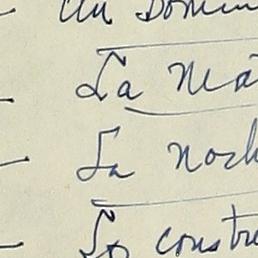 - Un Domin
- La Má
- La noch
- Los constru